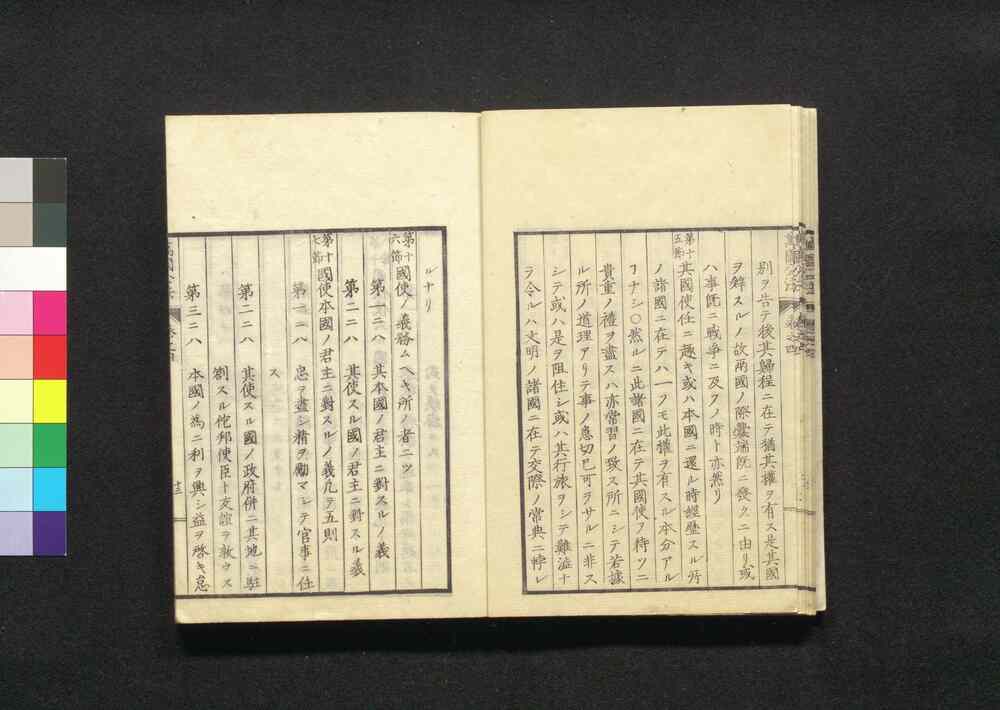 別ヲ告テ後其歸程ニ在テ猶其權ヲ有ス是其國
ヲ辭スルノ故兩國ノ際釁端既ニ發クニ由リ或
ハ事既ニ戰爭ニ及フノ時ト亦然リ
第十五節 其國使任ニ趣キ或ハ本國ニ還ル時經歴スル所
ノ諸國ニ在テハ一フモ此權ヲ有スル本分アル
ヿナシ○然ルニ此諸國ニ在テ其國使ヲ待ツニ
貴重ノ禮ヲ盡スハ亦常習ノ致ス所ニシテ若據
ル所ノ道理アリテ事ノ急切已可ラサルニ非ス
シテ或ハ是ヲ阻住シ或ハ其行旅ヲシテ難澁ナ
ラ令ルハ文明ノ諸國ニ在テ交際ノ常典ニ悖レ
ルナリ
第十六節 國使ノ義務ム可キ所ノ者二ツ
第一ニハ 其本國ノ君主ニ對スルノ義
第二ニハ 其使スル國ノ君主ニ對スル義
第十七節 國使本國ノ君主ニ對スルノ義凡テ五則
第一ニハ 忠ヲ盡シ精ヲ勵マシテ官事ニ任
ス
第二ニハ 其使スル國ノ政府併ニ其地ニ駐
劄スル佗邦使臣ト交誼ヲ敦ウス
第三ニハ 本國ノ爲ニ利ヲ興シ益ヲ啓キ怠
十三